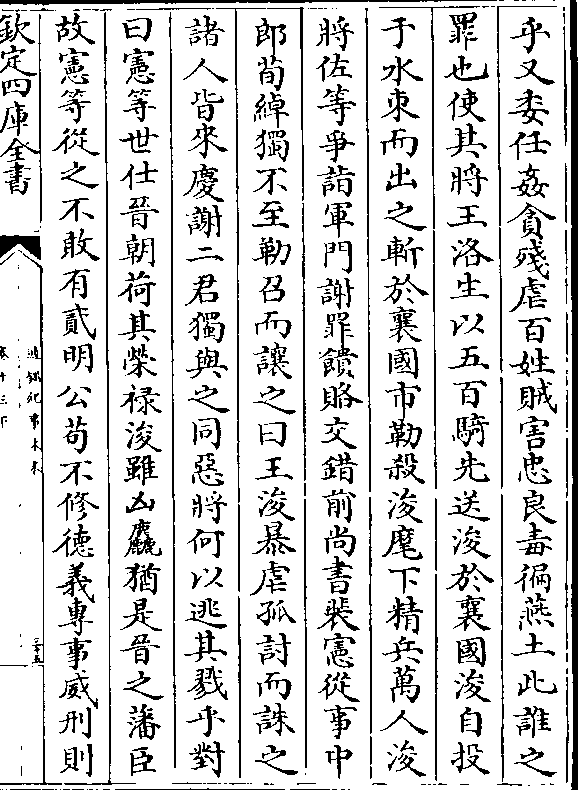 乎又委任姦貪殘虐百姓賊害忠良毒徧燕土此誰之
罪也使其將王洛生以五百騎先送浚於襄國浚自投
于水束而出之斬於襄國市勒殺浚麾下精兵萬人浚
將佐等爭詣軍門謝罪饋賂交錯前尚書裴憲從事中
郎荀綽獨不至勒召而讓之曰王浚暴虐孤討而誅之
諸人皆來慶謝二君獨與之同惡將何以逃其戮乎對
曰憲等世仕晉朝荷其榮祿浚雖凶麤猶是晉之藩臣
故憲等從之不敢有貳明公苟不修德義專事威刑則
欽定四庫全書
通鑑紀事本末
卷十三下